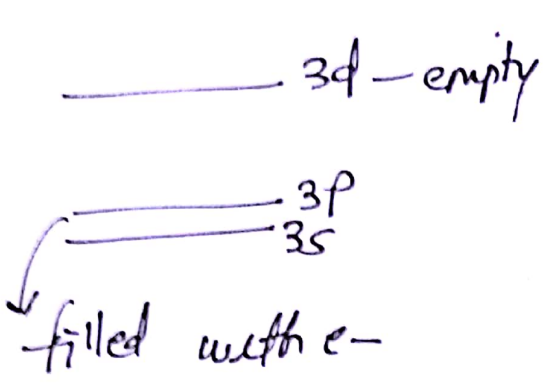 3d - empty
3p
3s
filled with e-